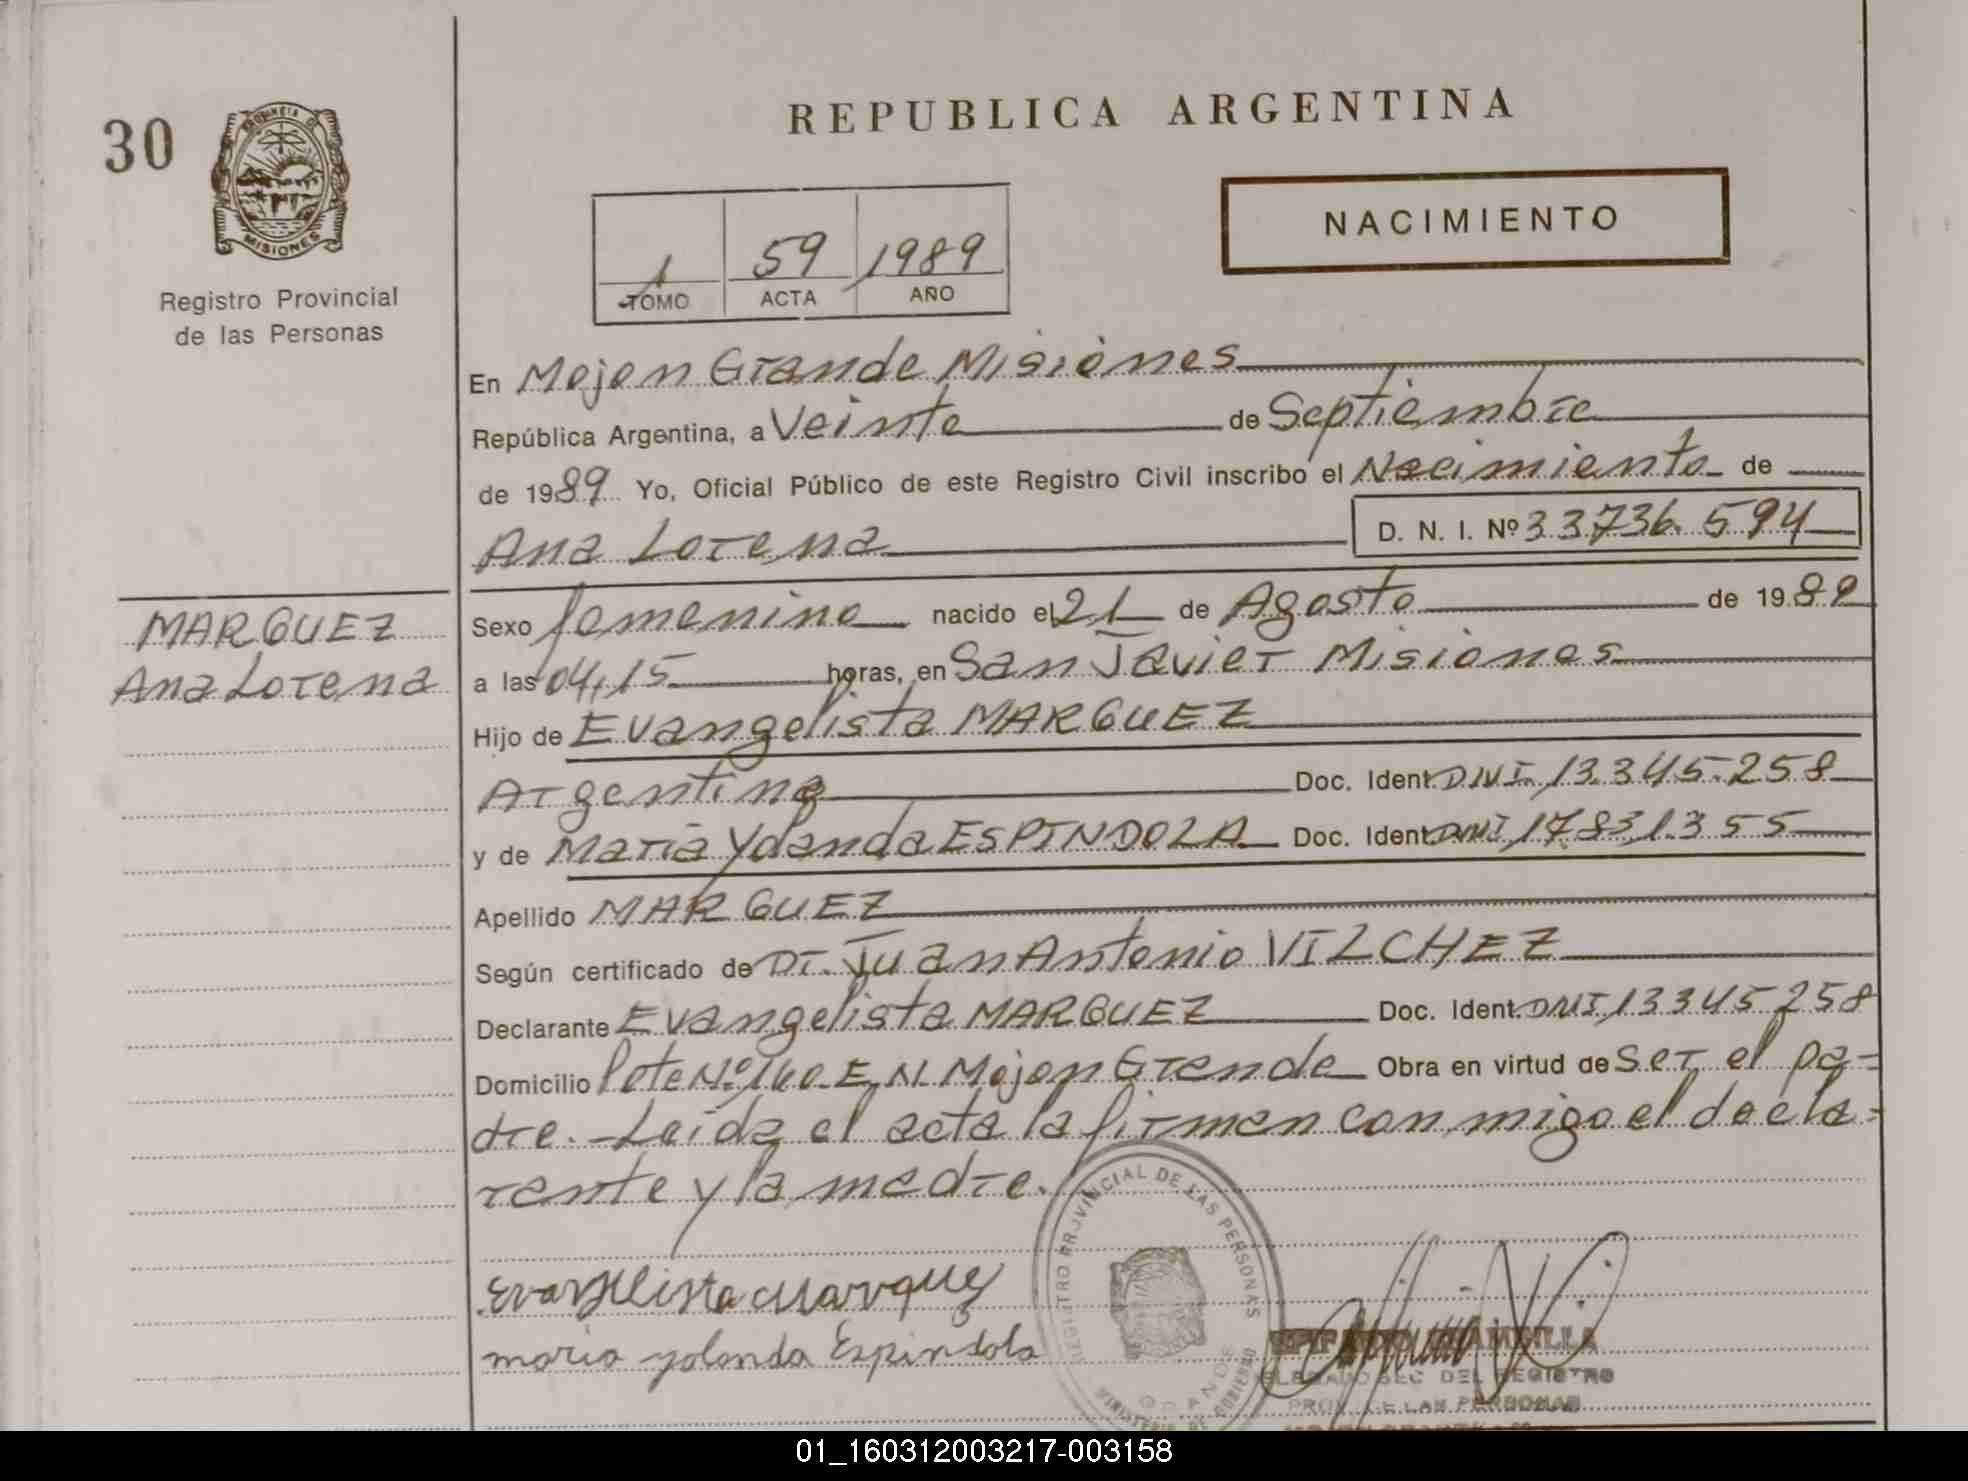 REPUBLICA ARGENTINA
30
PROVINCIA DE
MISIONES
Registro Provincial
de las Personas
NACIMIENTO
1 59 1989
TOMO ACTA AÑO
En Mojon Grande Misiones
República Argentina, a Veinte de Septiembre
de 1989 Yo, Oficial Público de este Registro Civil inscribo el Nacimiento de
Ana Lorena D. N. I. Nº 33736.594
MARQUEZ
Ana Lorena
Sexo femenino nacido el 21 de Agosto de 1989
a las 04,15 horas, en San Javier Misiones
Hijo de Evangelista MARQUEZ
Argentino Doc. Ident. DNI. 13.345.258
y de Maria Yolanda ESPINDOLA Doc. Ident. DNI, 17.831.355
Apellido MARQUEZ
Según certificado de Dr. Juan Antonio VILCHEZ
Declarante Evangelista MARQUEZ Doc. Ident. DNI, 13345258
Domicilio lote Nº 160 E.N. Mojon Grande Obra en virtud de ser el pa=
dre. Leida el acta la firman conmigo el decla=
rante y la madre.
Evangelista Marquez
maria yolanda Espindola
REGISTRO PROVINCIAL DE LAS PERSONAS
MINISTERIO DE GOBIERNO
DELEGADO SEC DEL REGISTRO
PROV. DE LAS PERSONAS
01_160312003217-003158